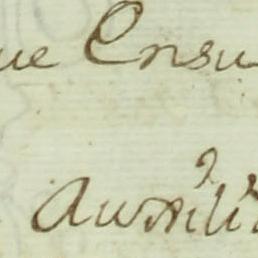 ue Ensu
Auxili